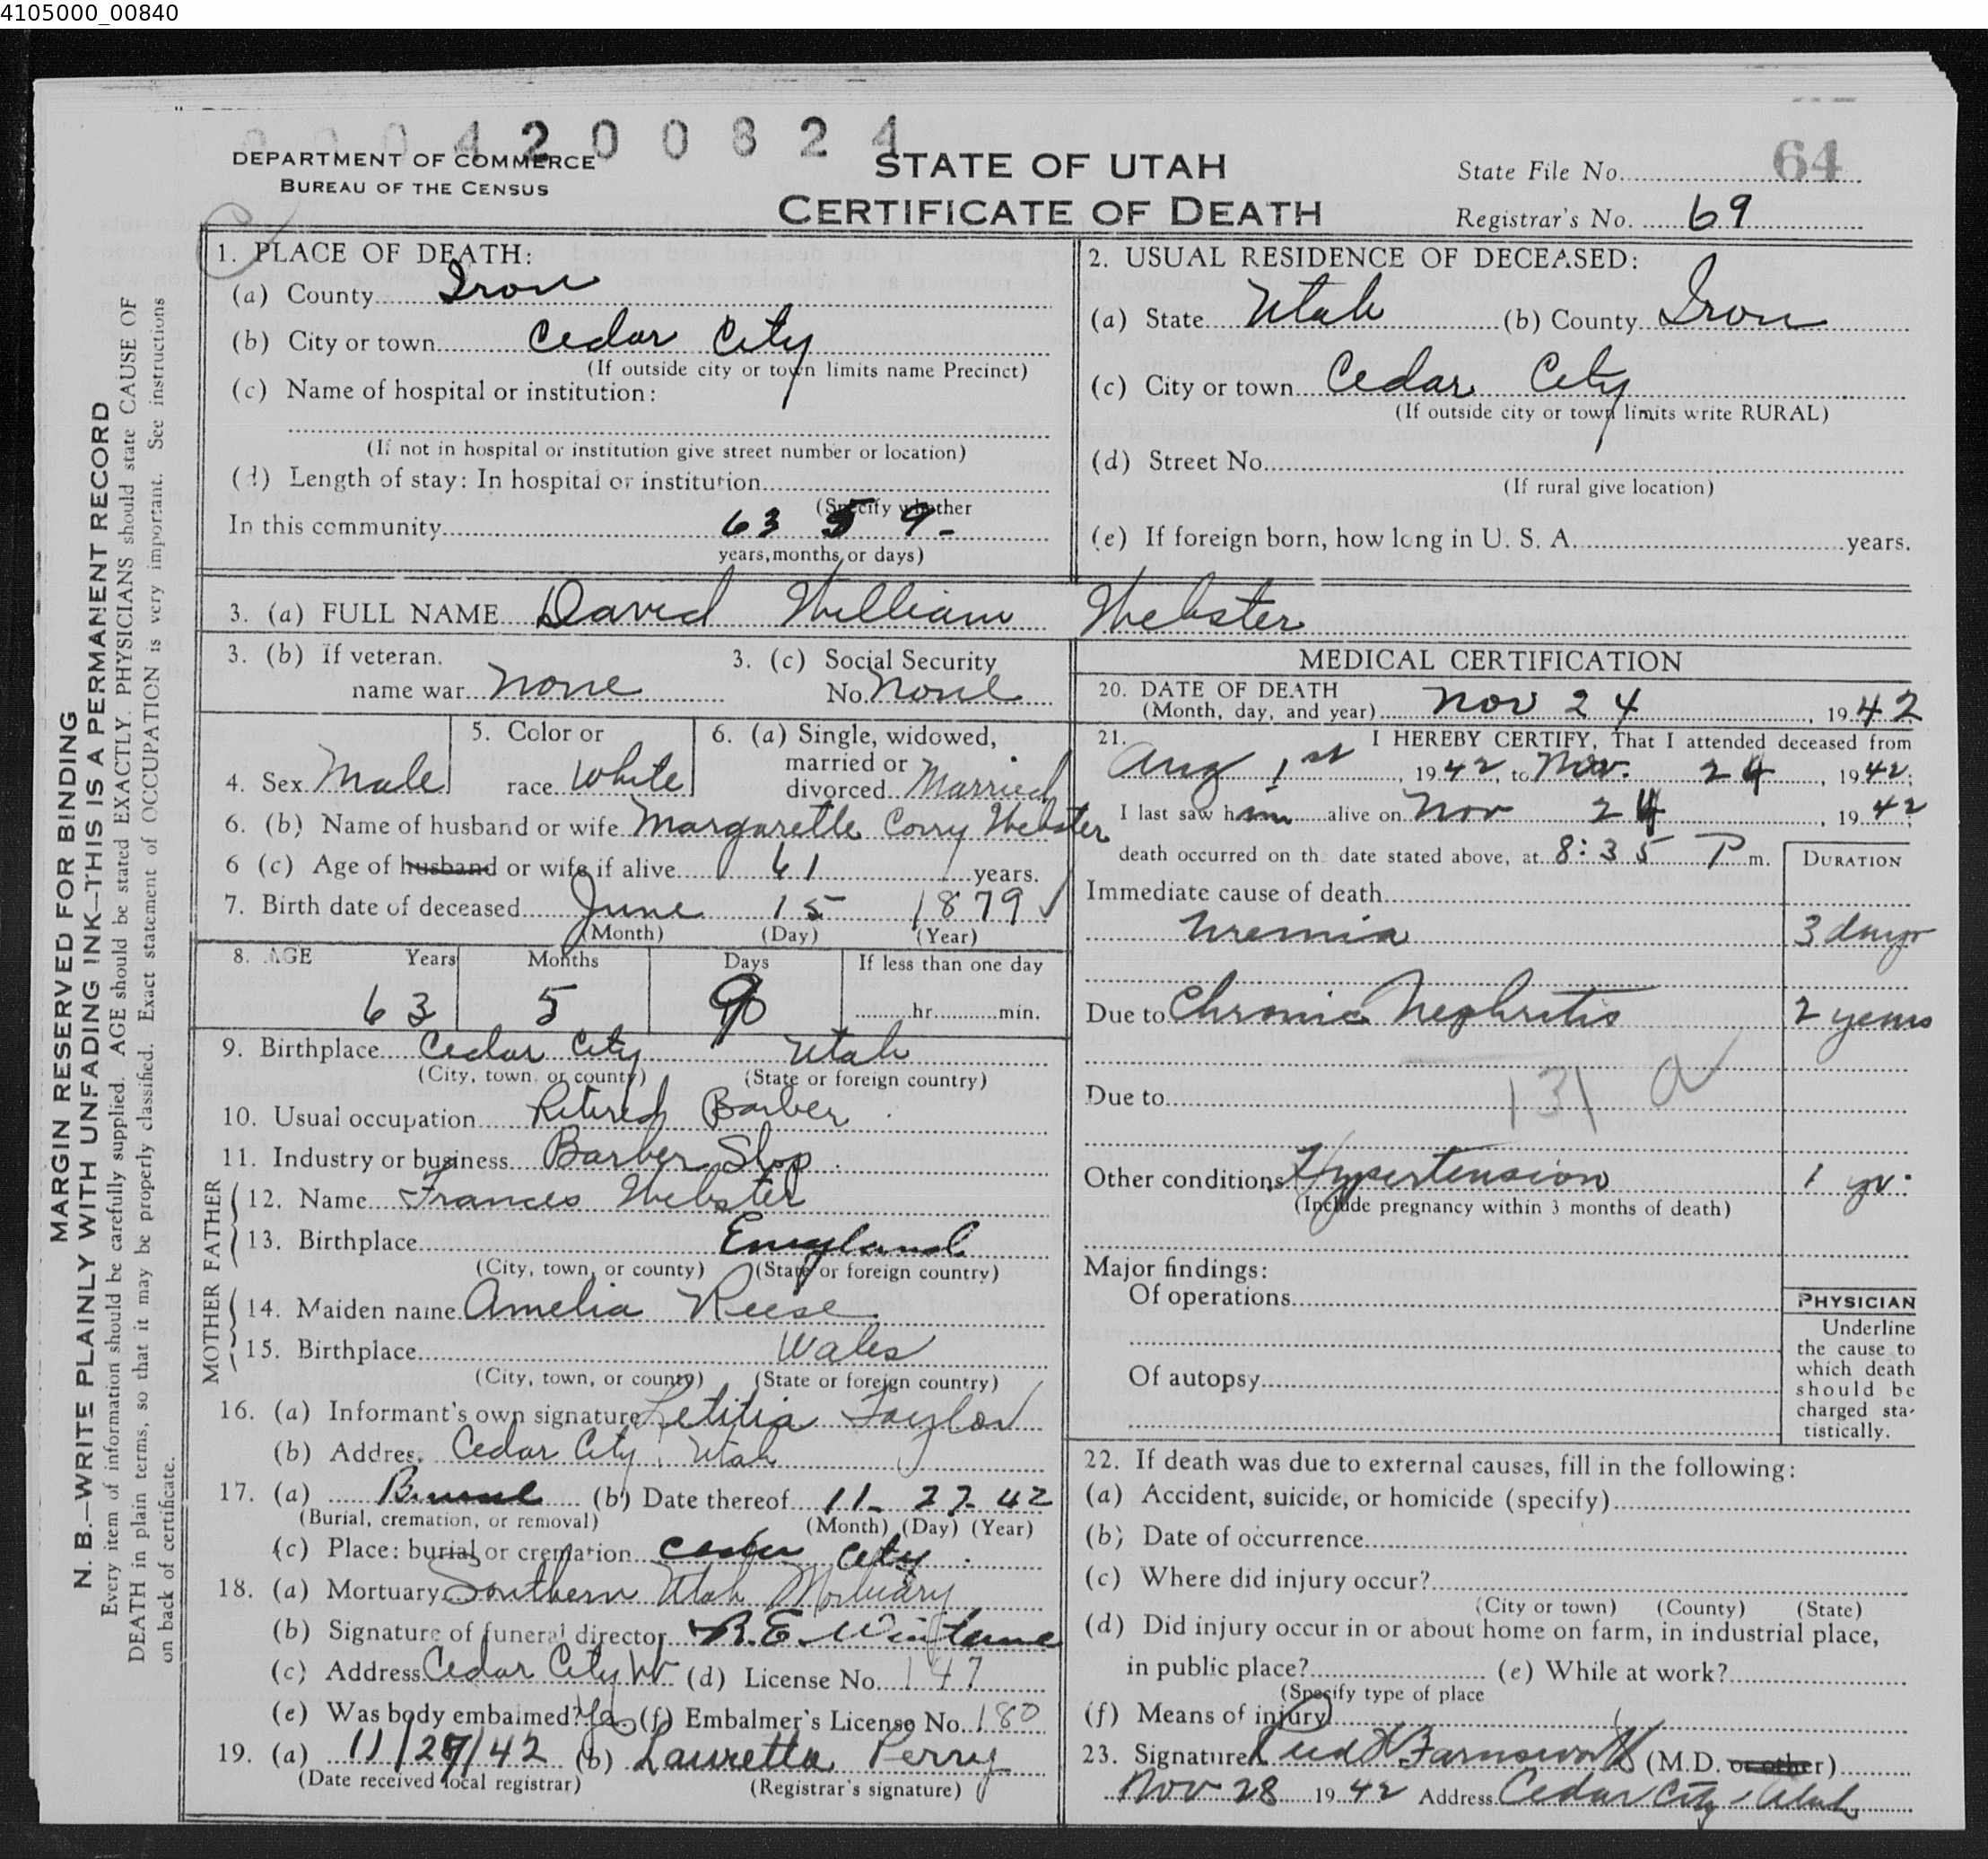 4105000_00840
0004200824
DEPARTMENT OF COMMERCE
BUREAU OF THE CENSUS
STATE OF UTAH
CERTIFICATE OF DEATH
State File No. 64
Registrar's No. 69
MARGIN RESERVED FOR BINDING
N. B.—WRITE PLAINLY WITH UNFADING INK—THIS IS A PERMANENT RECORD
Every item of information should be carefully supplied. AGE should be stated EXACTLY. PHYSICIANS should state CAUSE OF
DEATH in plain terms, so that it may be properly classified. Exact statement of OCCUPATION is very important. See instructions
on back of certificate.
1. PLACE OF DEATH:
(a) County Iron
(b) City or town Cedar City
(If outside city or town limits name Precinct)
(c) Name of hospital or institution:
(If not in hospital or institution give street number or location)
(d) Length of stay: In hospital or institution
(Specify whether
In this community 63 5 9-
years, months, or days)
2. USUAL RESIDENCE OF DECEASED:
(a) State Utah (b) County Iron
(c) City or town Cedar City
(If outside city or town limits write RURAL)
(d) Street No.
(If rural give location)
(e) If foreign born, how long in U. S. A. years.
3. (a) FULL NAME David William Webster
3. (b) If veteran.
name war none
3. (c) Social Security
No. none
4. Sex Male
5. Color or
race White
6. (a) Single, widowed,
married or
divorced Married
6. (b) Name of husband or wife Margarette Corry Webster
6 (c) Age of husband or wife if alive 61 years.
7. Birth date of deceased June 15 1879
(Month) (Day) (Year)
8. AGE Years Months Days If less than one day
63 5 9 hr. min.
9. Birthplace Cedar City Utah
(City, town, or county) (State or foreign country)
10. Usual occupation Retired Barber
11. Industry or business Barber Shop
FATHER
12. Name Frances Webster
13. Birthplace England
(City, town, or county) (State or foreign country)
MOTHER
14. Maiden name Amelia Reese
15. Birthplace Wales
(City, town, or county) (State or foreign country)
16. (a) Informant's own signature Letitia Taylor
(b) Address Cedar City, Utah
17. (a) Burial (b) Date thereof 11- 27- 42
(Burial, cremation, or removal) (Month) (Day) (Year)
(c) Place: burial or cremation Cedar City.
18. (a) Mortuary Southern Utah Mortuary
(b) Signature of funeral director R. E.
(c) Address Cedar City Ut (d) License No. 147
(e) Was body embalmed? Yes (f) Embalmer's License No. 180
19. (a) 11/27/42 (b) Lauretta Perry
(Date received local registrar) (Registrar's signature)
MEDICAL CERTIFICATION
20. DATE OF DEATH
(Month, day, and year) Nov 24, 1942
21. I HEREBY CERTIFY, That I attended deceased from
Aug 1st, 1942, to Nov. 24, 1942;
I last saw him alive on Nov 24, 1942;
death occurred on the date stated above, at 8:35 P m.
DURATION
Immediate cause of death
Uremia 3 days
Due to Chronic Nephritis 2 years
131 a
Due to
Other conditions Hypertension 1 yr.
(Include pregnancy within 3 months of death)
Major findings:
Of operations
Of autopsy
PHYSICIAN
Underline
the cause to
which death
should be
charged sta-
tistically.
22. If death was due to external causes, fill in the following:
(a) Accident, suicide, or homicide (specify)
(b) Date of occurrence
(c) Where did injury occur?
(City or town) (County) (State)
(d) Did injury occur in or about home on farm, in industrial place,
in public place? (e) While at work?
(Specify type of place
(f) Means of injury
23. Signature Farnsworth (M.D. or other)
Nov 28 1942 Address Cedar City, Utah